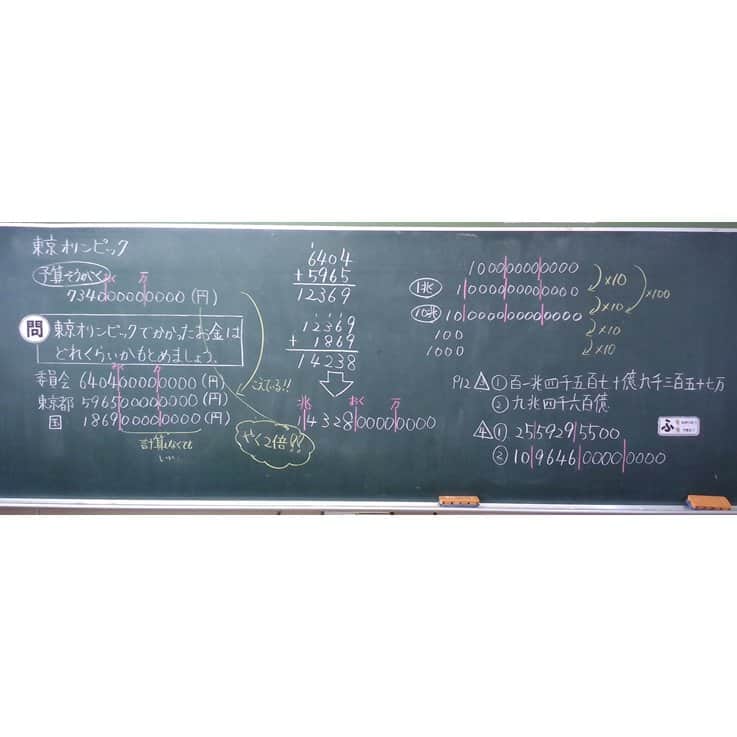 東京オリンピック
予算そうがく おく 万
734000000000 (円)
問 東京オリンピックでかかったお金は
どれくらいかもとめましょう。
委員会 640400000000 (円)
東京都 596500000000 (円)
国 186900000000 (円)
計算しなくても
いい
こえている!!
やく2倍!!
1
6404
+5965
12369
1 1 1
12369
+ 1869
14238
兆 おく 万
1432800000000
1000000000000
×10
×100
1兆
×10
10兆
100
×10
1000
×10
P12 3 ①百一兆四千五百七十億九千三百五十七万
② 九兆四千六百億
4 ① 25592955500
② 10964600000000
ふ